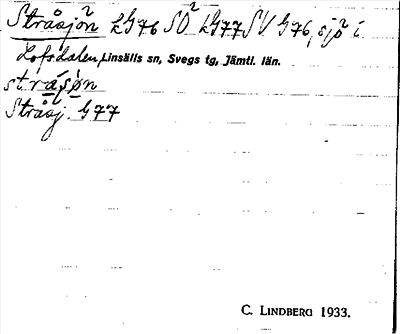 Stråsjön LG76 SO LG77 SV G76, sjö i
Lofsdalen, Linsälls sn, Svegs tg, Jämtl. län.
stråsön
Stråsj. G77
C. LINDBERG 1933.